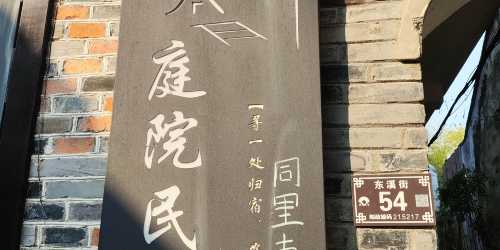 庭院民
【寻一处归宿,
同里
东溪街
54
邮政编码 215217